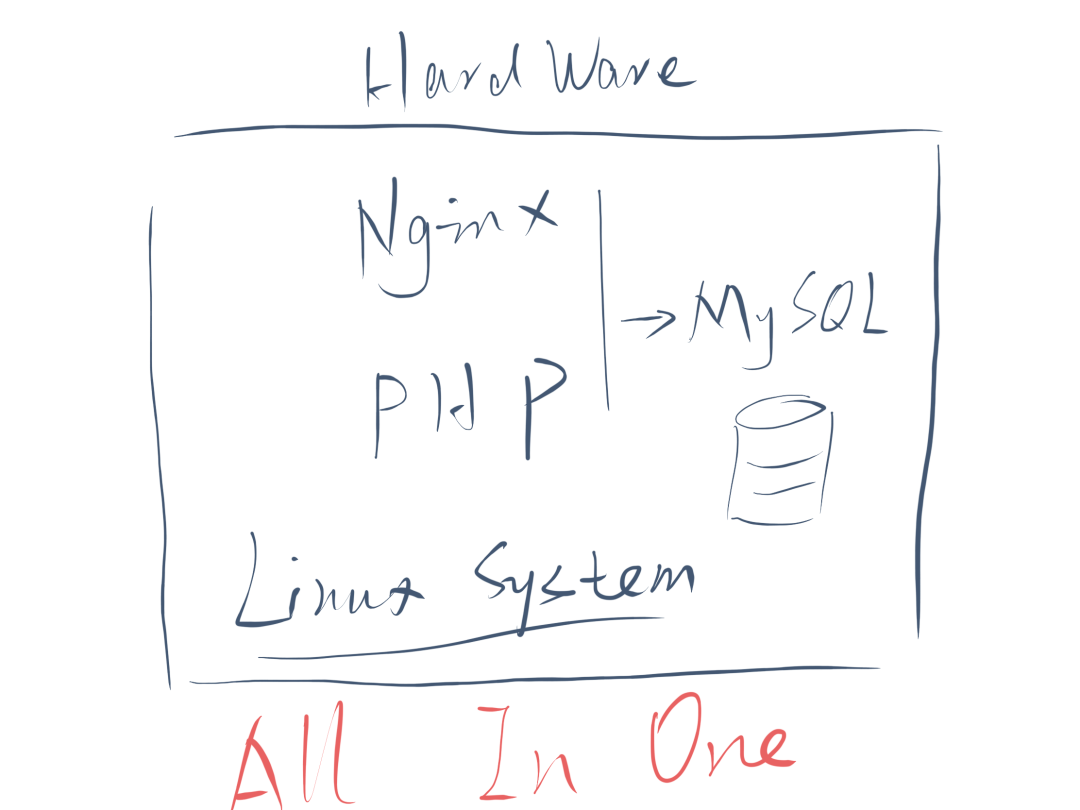 HardWare
Nginx
→ MySQL
PHP
Linux System
All In One